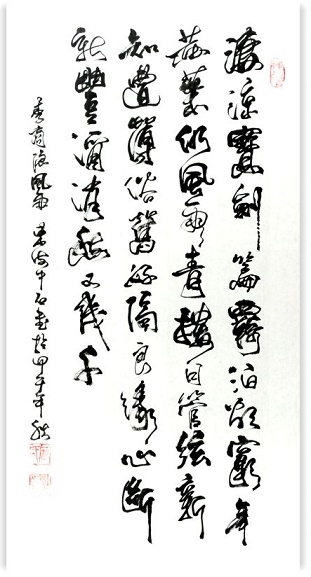 淒涼寶劍篇羈泊欲窮年
黃葉仍風雨青樓自管絃新
知遭薄俗舊好隔良緣心斷
新豐酒消愁又幾千
李商隱風雨 中石書於甲午年秋